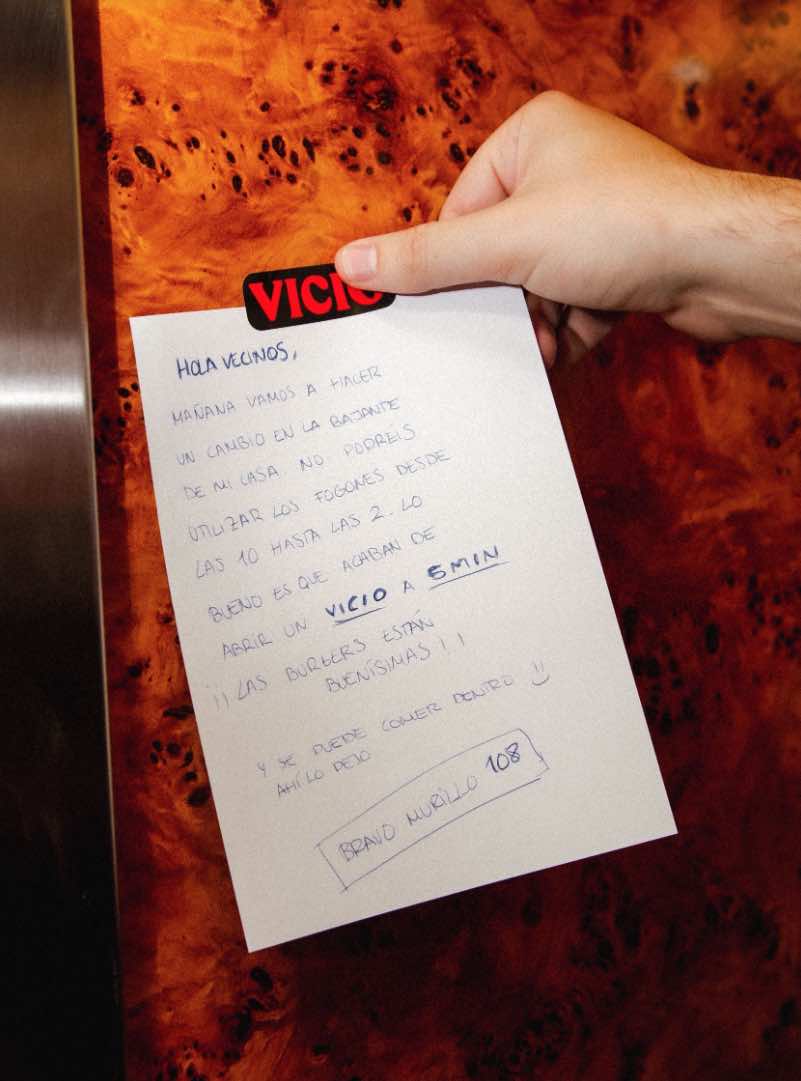 VICIO
HOLA VECINOS,
MAÑANA VAMOS A HACER
UN CAMBIO EN LA BAJANTE
DE MI CASA. NO PODRÉIS
UTILIZAR LOS FOGONES DESDE
LAS 10 HASTA LAS 2. LO
BUENO ES QUE ACABAN DE
ABRIR UN VICIO A 5 MIN
¡¡LAS BURGERS ESTÁN
BUENÍSIMAS!!
Y SE PUEDE COMER DENTRO
AHÍ LO DEJO
BRAVO MURILLO 108